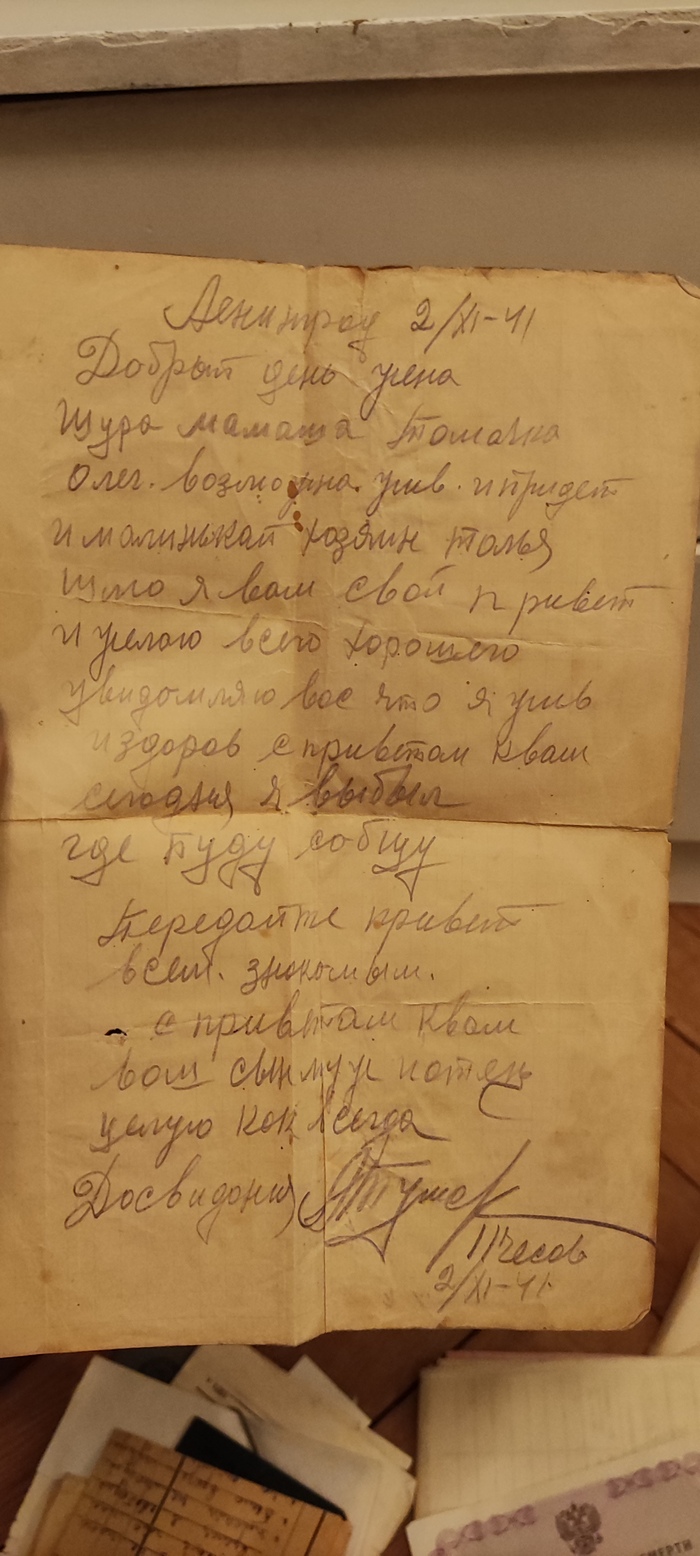 Ленинград 2/XI-41
Добрый день жена
Шура мамаша Томачка
Олег. возможна. жив. и придет
и малинькай хозяин толья
Шлю я вам свой привет
и желаю всего хорошего
увидомляю вас что я жив
и здоров с приветам квам
сегодня я выбыл
где буду собщу
Передайте привет
всем. знакомым.
с приветам квам
ваш сын муж и отец
целую как всегда
Досвидония
11 часов
2/XI-41